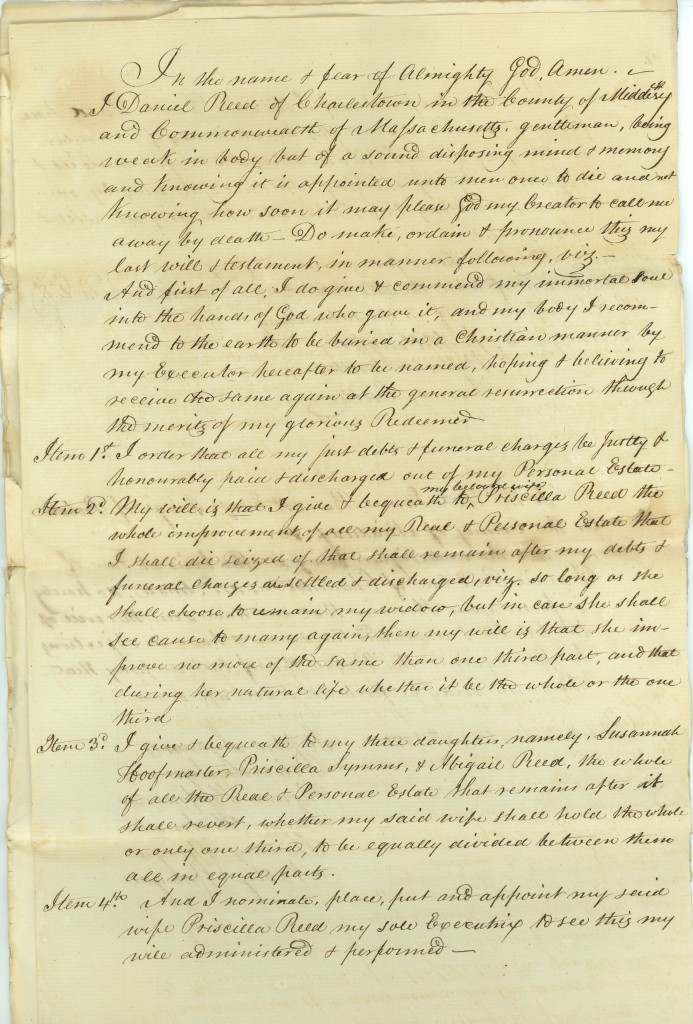 In the name & fear of Almighty God, Amen. –
I Daniel Reed of Charlestown in the County of Middx
and Commonwealth of Massachusetts. gentleman, being
weak in body but of a sound disposing mind & memory
and knowing it is appointed unto men once to die and not
knowing how soon it may please God my Creator to call me
away by death – Do make, ordain & pronounce this my
last will & testament, in manner following, viz. –
And first of all, I do give & commend my immortal soul
into the hands of God who gave it, and my body I recom-
mend to the earth to be buried in a Christian manner by
my Executor hereafter to be named, hoping & believing to
receive the same again at the general resurrection through
the merits of my glorious Redeemer
Item 1st. I order that all my just debts & funeral charges be Justly &
honourably paid & discharged out of my Personal Estate –
my beloved wife
Item 2d. My will is that I give & bequeath to ‸ Priscilla Reed the
whole improvement of all my Real & Personal Estate that
I shall die seized of that shall remain after my debts &
funeral charges are settled & discharged, viz. so long as she
shall choose to remain my widow, but in case she shall
see cause to marry again, then my will is that she im-
prove no more of the same than one third part, and that
during her natural life whether it be the whole or the one
third
Item 3d. I give & bequeath to my three daughters, namely, Susannah
Hoofmaster, Priscilla Symms, & Abigail Reed, the whole
of all the Real & Personal Estate that remains after it
shall revert, whether my said wife shall hold the whole
or only one third, to be equally divided between them
all in equal parts.
Item 4th. And I nominate, place, put and appoint my said
wife Priscilla Reed my sole Executrix to see this my
will administered & performed –